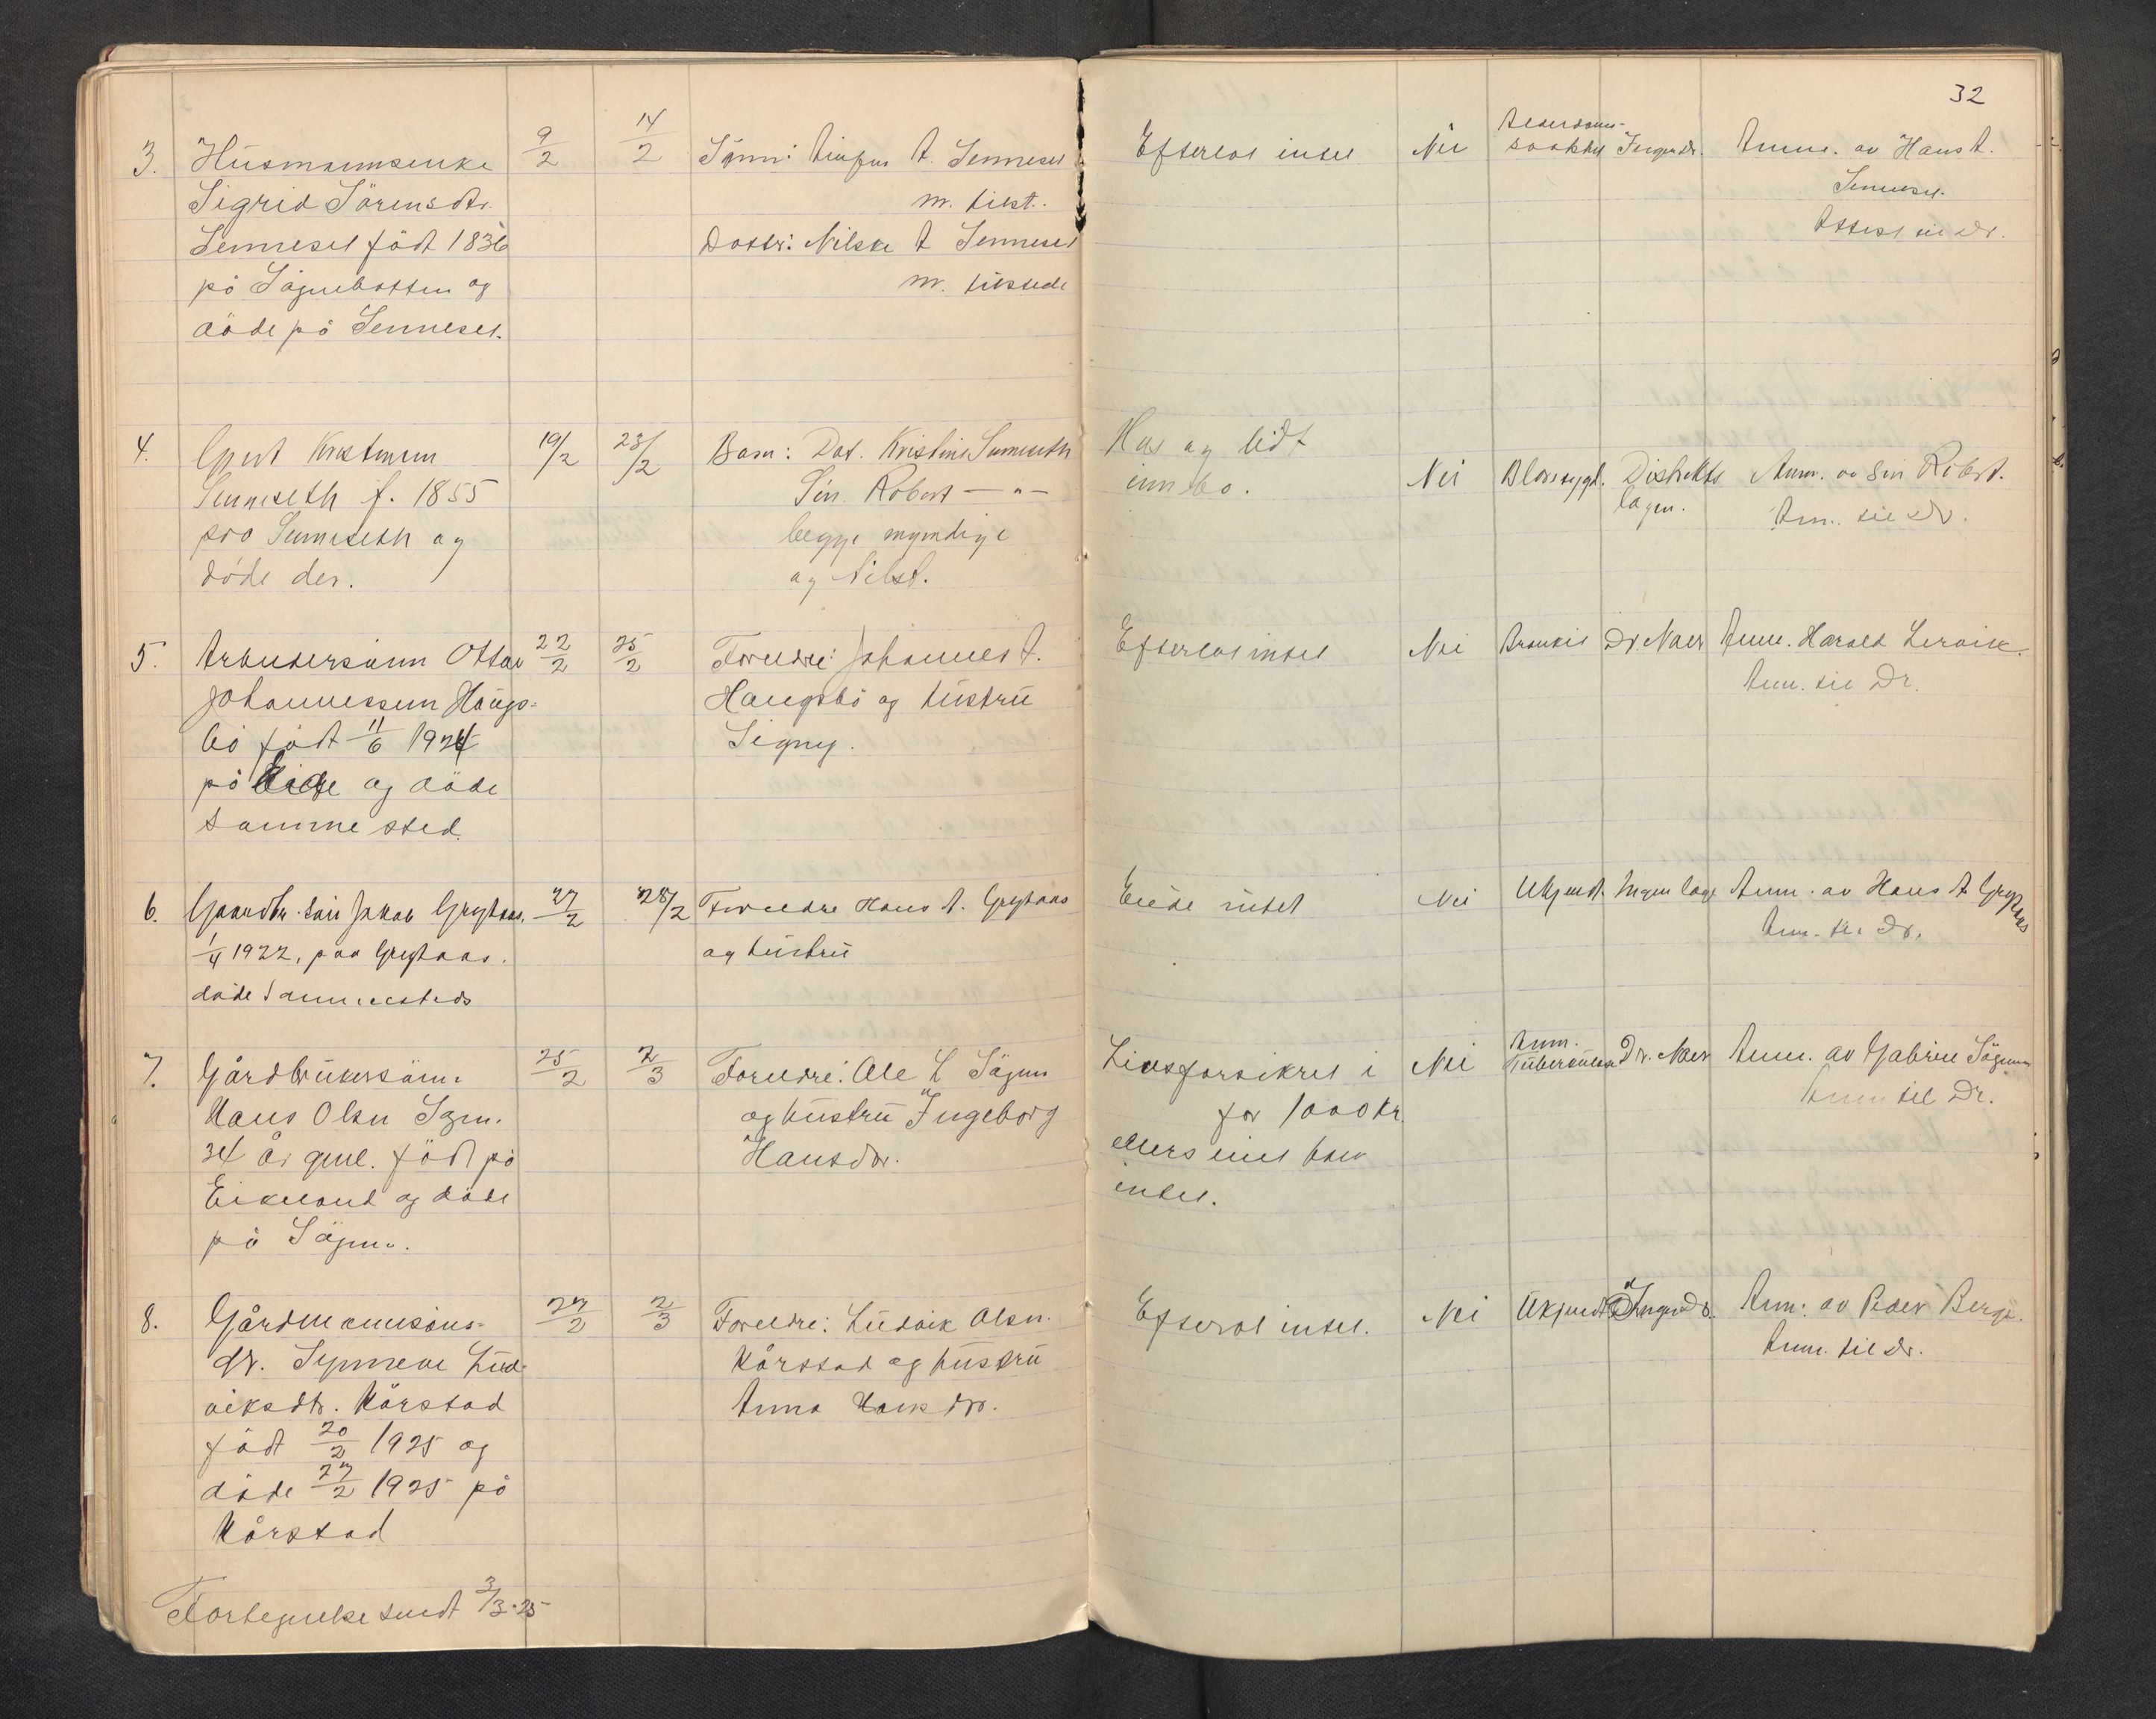 32
3.
Husmannsenke
Sigrid Sörensdtr.
Sennesel födt 1836
på Sögnebotten og
döde på Sennesel.
9/2
14/2
Sönn: A. Sennesel
m. tilst.
Dotter: Nilske A Sennesel
m. tilstede
Efterlot intet
Nei
Alderdoms-
svakhet
Ingen Dr.
Anm. av Hans A.
Sennesel.
Attest til Dr.
4.
Gurt Kristensen
Senneseth f. 1855
paa Senneseth og
döde der.
19/2
23/2
Barn: Dat. Kristine Senneseth
Sön. Robert — " —
begge myndige
og tilst.
Hus og lidt
innbo.
Nei
Distrikts
lægen.
Anm. av Sön Robert.
Anm. til Dr.
5.
Arbeidersönn Ottar
Johannessen Haugs-
bö födt 11/6 1924
på Eide og döde
samme sted.
22/2
25/2
Foreldre: Johannes A.
Haugsbö og hustru
Signy.
Efterlot intet
Nei
Bronkit
Dr. Naer
Anm. Harald Lervik.
Anm. til Dr.
6.
Gaardbr. sön Jakob Grythaas,
1/4 1922, paa Grythaas.
döde sammesteds
27/2
28/2
Foreldre Hans A. Grythaas
og hustru
Eiede intet
Nei
Ukjendt.
Ingen læge
Anm. av Hans A Grythaas
Anm. til Dr.
7.
Gårdbrukersönn
Hans Olsen Sögnen
34 år gml. födt på
Eikeland og döde
på Sögnen.
25/2
2/3
Foreldre: Ole L Sögnen
og hustru Ingeborg
Hansdtr.
Livsforsikret i
for 1000 kr.
ellers eiet han
intet.
Nei
Anm.
Tuberkulose
Dr. Naer
Anm. av Gabriel Sögnen
Anm til Dr.
8.
Gårdmannsöns-
dtr. Synneve Lud-
viksdtr. Kårstad
födt 20/2 1925 og
döde 27/2 1925 på
Kårstad
27/2
2/3
Foreldre: Ludvik Olsen
Kårstad og hustru
Anna Hansdtr.
Efterlot intet.
Nei
Ukjendt
Ingen Dr.
Anm: av Peder Berge.
Anm. til Dr.
Fortegnelse sendt 3/3-25